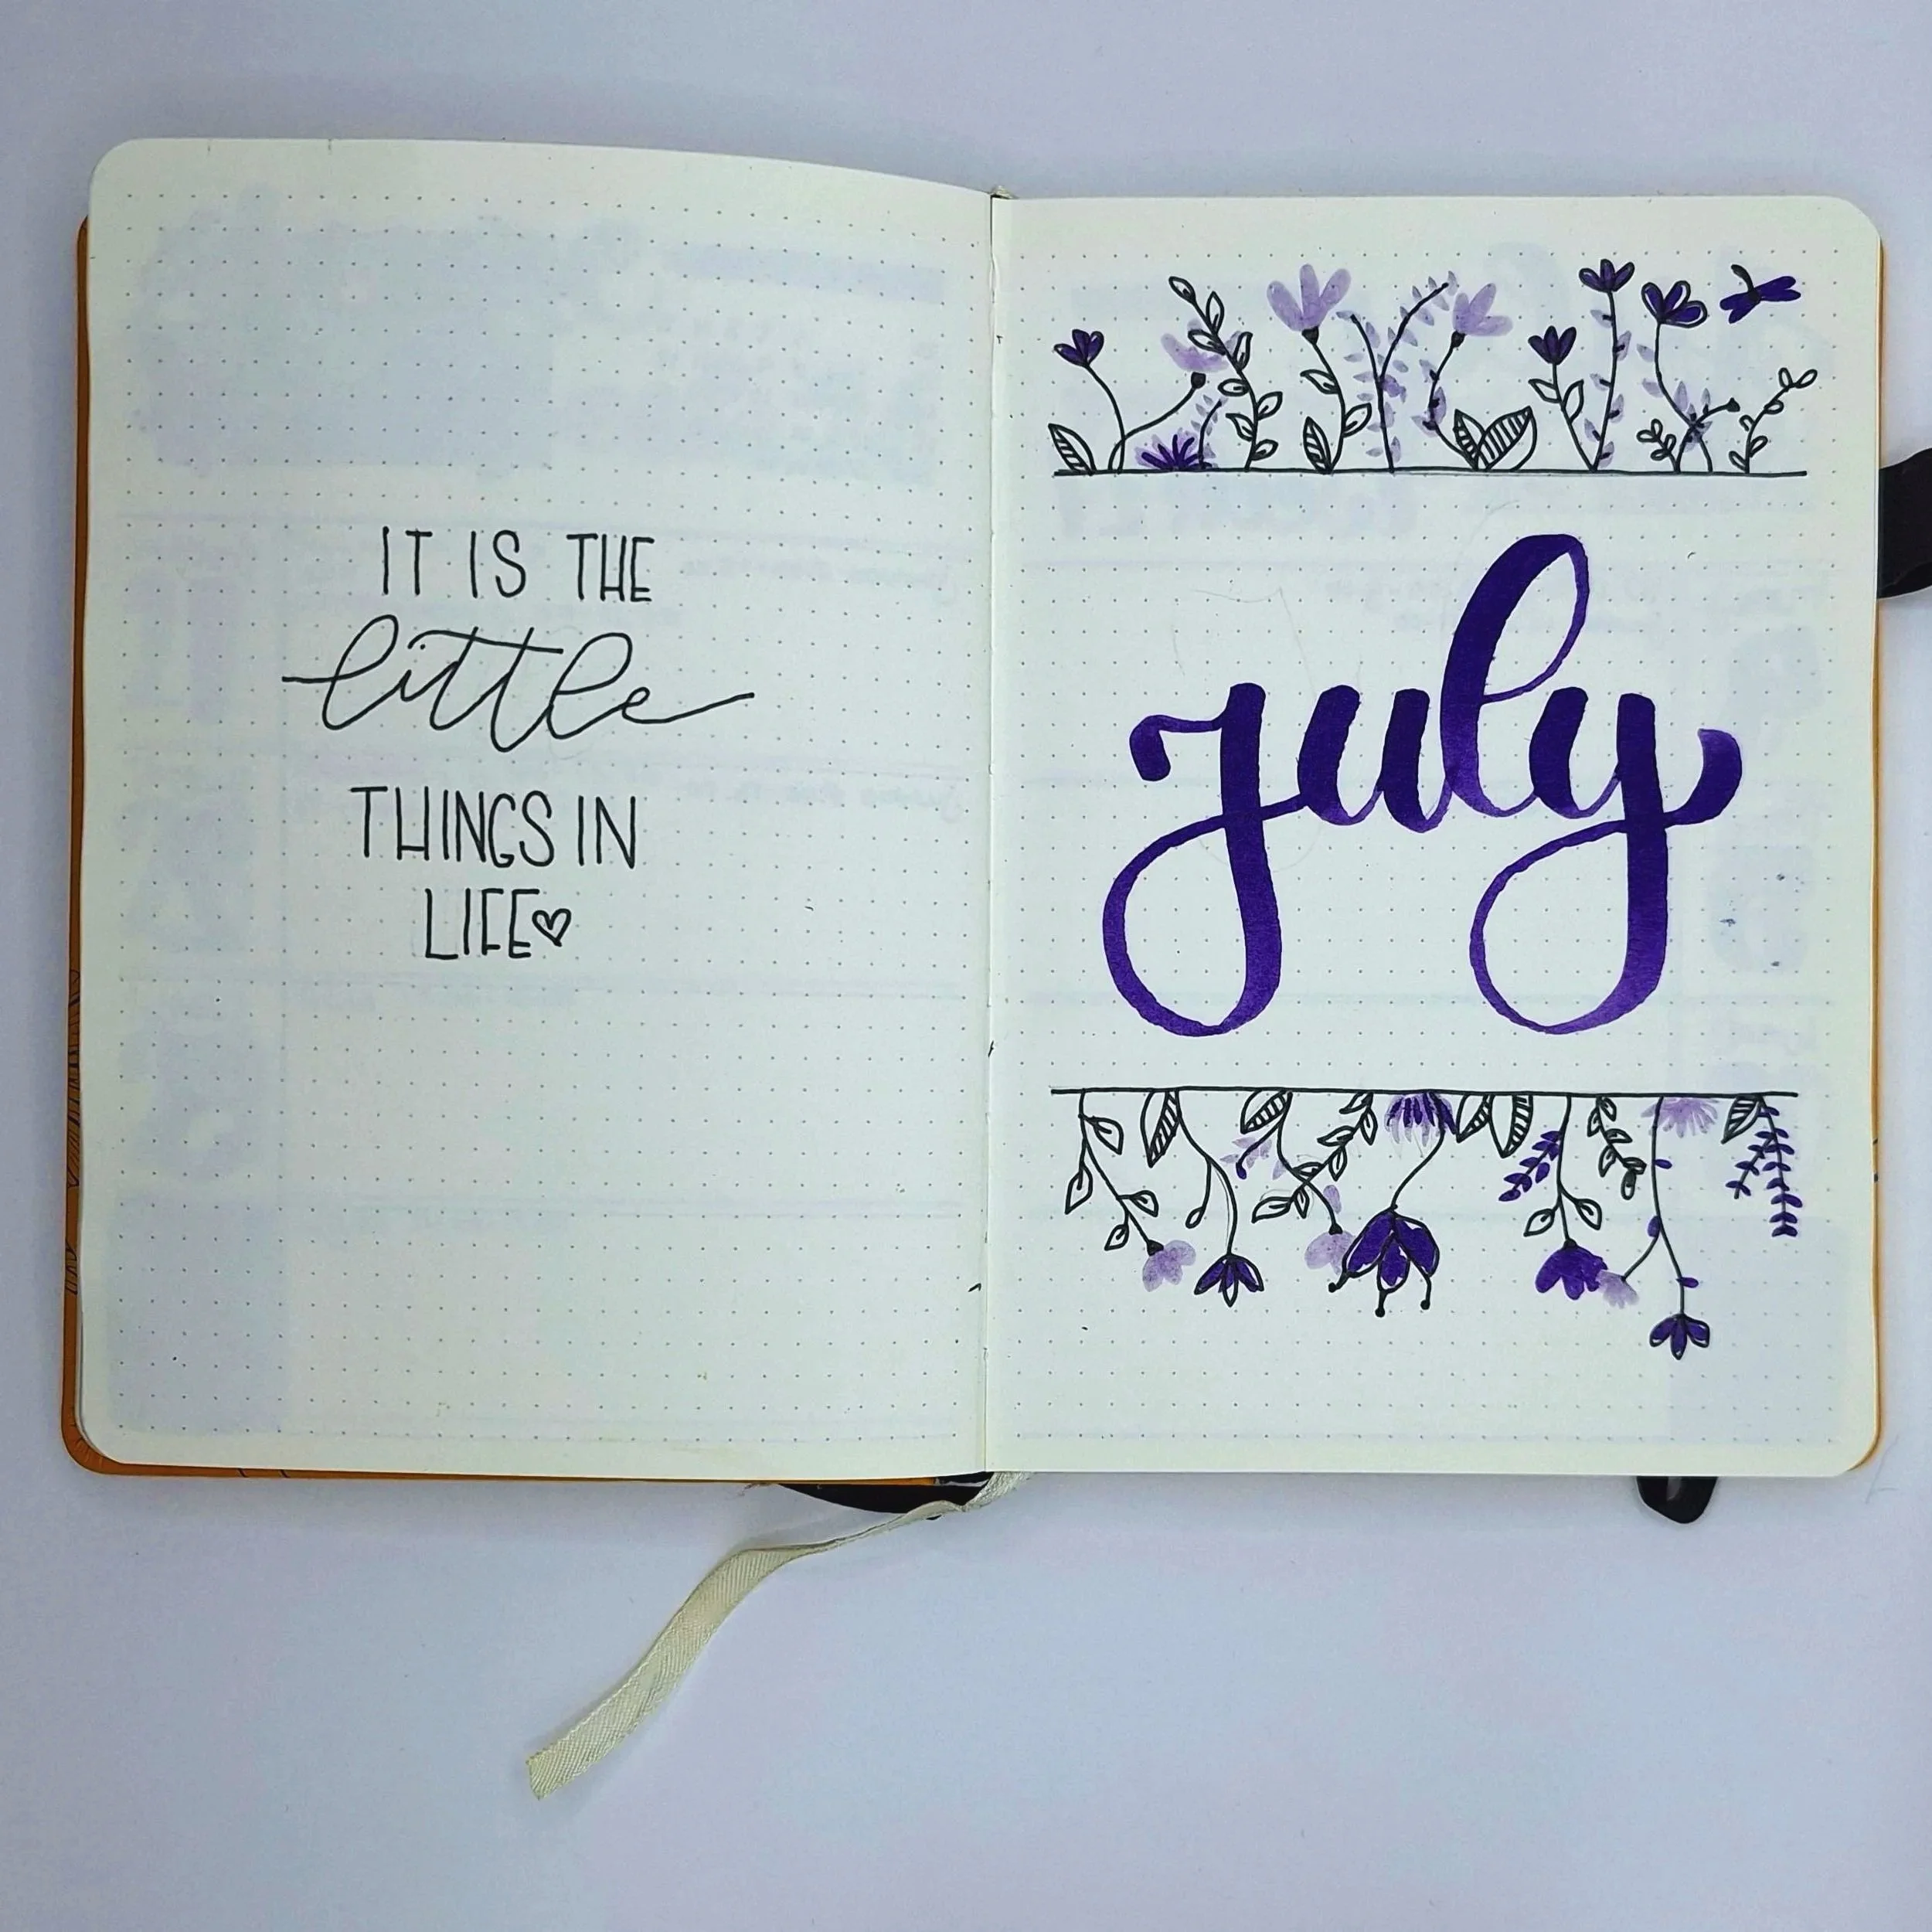 IT IS THE
little
THINGS IN
LIFE♡
july